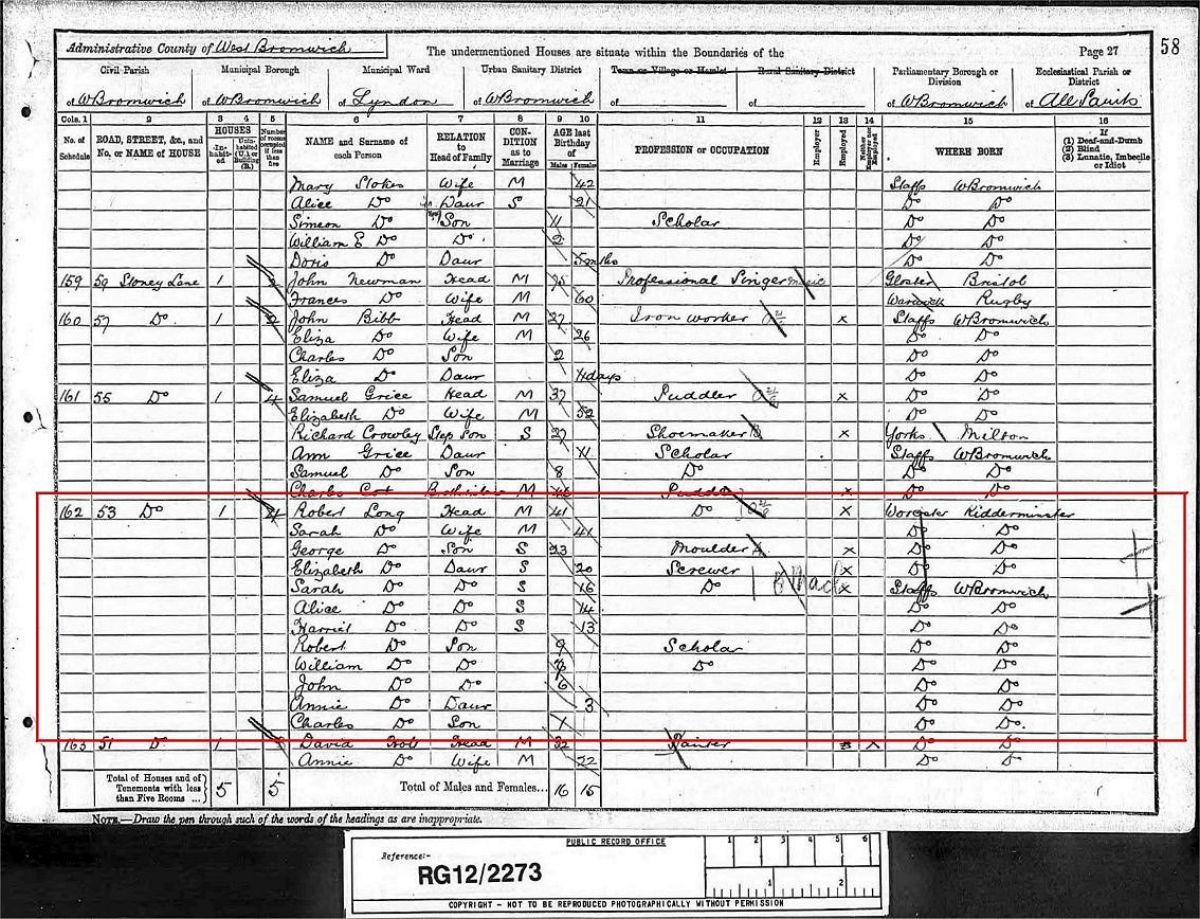 Administrative County of West Bromwich
The undermentioned Houses are situate within the Boundaries of the
Page 27
58
Civil Parish
Municipal Borough
Municipal Ward
Urban Sanitary District
Town or Village or Hamlet
Rural Sanitary District
Parliamentary Borough or Division
Ecclesiastical Parish or District
of WBromwich of WBromwich of Lyndon of WBromwich of of of WBromwich of All Saints
Cols. 1 2 3 4 5 6 7 8 9 10 11 12 13 14 15 16
No. of Schedule
ROAD, STREET, &c., and No. or NAME of HOUSE
HOUSES
Inhabited
Uninhabited (U.) or Building (B.)
Number of rooms occupied if less than five
NAME and Surname of each Person
RELATION to Head of Family
CONDITION as to Marriage
AGE last Birthday of
Males Females
PROFESSION or OCCUPATION
Employer
Employed
Neither Employer nor Employed
WHERE BORN
If
(1) Deaf-and-Dumb
(2) Blind
(3) Lunatic, Imbecile or Idiot
Mary Stokes Wife M 42 Staffs WBromwich
Alice Do Daur S 21 Do Do
Simeon Do Son 11 Scholar Do Do
William E Do Do 2 Do Do
Doris Do Daur 5 mths Do Do
159 59 Stoney Lane 1 2 John Newman Head M Professional Singer music Gloster Bristol
Frances Do Wife M 60 Warwick Rugby
160 57 Do 1 2 John Bibb Head M 27 Iron worker x Staffs WBromwich
Eliza Do Wife M 26 Do Do
Charles Do Son 2 Do Do
Eliza Do Daur 4 days Do Do
161 55 Do 1 4 Samuel Grice Head M 37 Puddler x Do Do
Elizabeth Do Wife M 52 Do Do
Richard Crowley Step Son S 27 Shoemaker x Yorks Milton
Ann Grice Daur 11 Scholar Staffs WBromwich
Samuel Do Son 8 Do Do Do
Charles Cox Brotherinlaw M 46 Puddler x Do Do
162 53 Do 1 4 Robert Long Head M 41 Do x Worcester Kidderminster
Sarah Do Wife M 41 Do Do
George Do Son S 23 Moulder x Do Do
Elizabeth Do Daur S 20 Screwer x Do Do
Sarah Do Do S 16 Do x Staffs WBromwich
Alice Do Do S 14 Do Do
Harriet Do Do S 13 Do Do
Robert Do Son 9 Scholar Do Do
William Do Do 8 Do Do Do
John Do Do 6 Do Do
Annie Do Daur 3 Do Do
Charles Do Son 1 Do Do
163 51 Do 1 David Holt Head M 32 Painter x Do Do
Annie Do Wife M 22 Do Do
Total of Houses and of Tenements with less than Five Rooms ... 5 5
Total of Males and Females... 16 15
NOTE.—Draw the pen through such of the words of the headings as are inappropriate.
PUBLIC RECORD OFFICE
Reference:-
RG12/2273
1 2 3 4 5 6
1 2
COPYRIGHT - NOT TO BE REPRODUCED PHOTOGRAPHICALLY WITHOUT PERMISSION